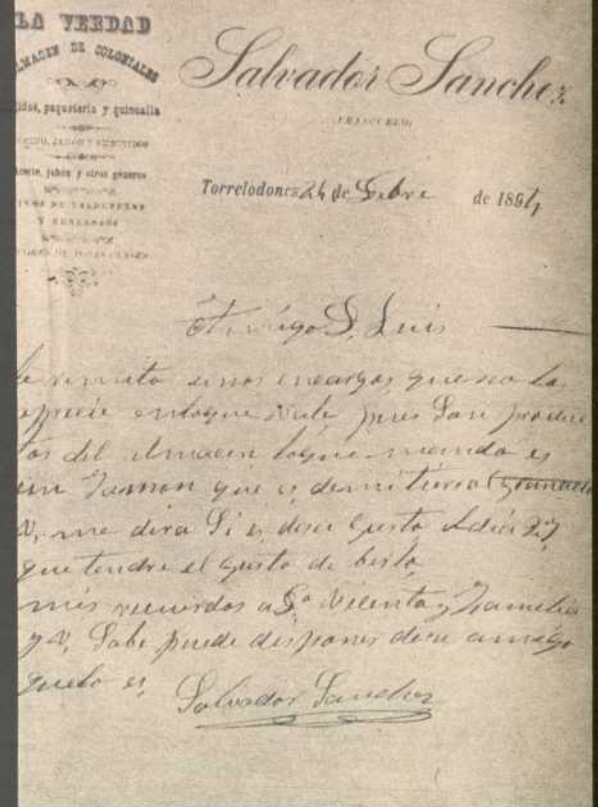 LA VERDAD
ALMACEN DE COLONIALES
Tejidos, paquetería y quincalla
Aceite, jabon y otros géneros
VINOS DE VALDEPEÑAS
Salvador Sanchez
(FRASCUELO)
Torrelodones 24 de Febre de 1894
Amigo D. Luis
le remito unos encargos que no los
aprecie en loque vale pues Son produc
tos del Almacen loque mando es
un Jamon que es de mi tierra (Granada)
V, me dira Si es de su Gusto Adios
que tendre el gusto de berlo
mis recuerdos a Dª Vicenta y Familia
y V, Sabe puede disponer de su amigo
quelo es,
Salvador Sanchez